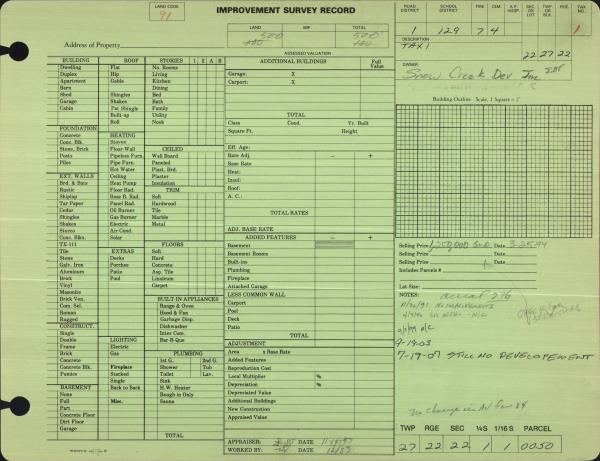 LAND CODE
91
IMPROVEMENT SURVEY RECORD
LAND IMP. TOTAL
500 500
ROAD DISTRICT SCHOOL DISTRICT FIRE CEM. A.P. HOSP. SEC OR LOT TWP OR BLK RGE TAX NO.
1 129 7 4 1
DESCRIPTION
TAX 1 22 27 22
Address of Property
ASSESSED VALUATION
OWNER:
Snow Creek Dev Inc
BUILDING ROOF STORIES 1 2 A B
Dwelling Flat No. Rooms
Duplex Hip Living
Apartment Gable Kitchen
Barn Dining
Shed Shingles Bed
Garage Shakes Bath
Cabin Pat Shingle Family
Built-up Utility
Roll Nook
FOUNDATION
Concrete HEATING
Conc. Blk. Stoves CEILED
Stone, Brick Floor-Wall Wall Board
Posts Pipeless Furn. Paneled
Piles Pipe Furn. Plast. Brd.
Hot Water Plaster
EXT. WALLS Ceiling Insulation
Brd. & Bats Heat Pump TRIM
Rustic Floor Rad. Soft
Shiplap Base B. Rad. Hardwood
Tar Paper Panel Rad. Tile
Cedar Oil Burner Marble
Shingles Gas Burner Metal
Shakes Electric
Stucco Air Cond.
Conc. Blks. Solar
TX-111 FLOORS
Tile EXTRAS Soft
Stone Decks Hard
Galv. Iron Porches Concrete
Aluminum Patio Asp. Tile
Brick Pool Linoleum
Vinyl Carpet
Masonite
Brick Ven. BUILT-IN APPLIANCES
Com. Sel. Range & Oven
Roman Hood & Fan
Ragged Garbage Disp.
CONSTRUCT. Dishwasher
Single Inter Com.
Double LIGHTING Bar-B-Que
Frame Electric
Brick Gas PLUMBING
Concrete 1st G. 2nd G.
Concrete Blk. Fireplace Shower Tub
Pumice Stacked Toilet Lav.
Single Sink
BASEMENT Back to Back H.W. Heater
None Rough-in Only
Full Misc. Sauna
Part
Concrete Floor
Dirt Floor
Garage TOTAL
ADDITIONAL BUILDINGS Full Value
Garage: X
Carport: X
TOTAL
Class Cond. Yr. Built
Square Ft. Height
Eff. Age:
Rate Adj. − +
Base Rate
Heat:
Insul:
Roof:
A. C.:
TOTAL RATES
ADJ. BASE RATE
ADDED FEATURES − +
Basement
Basement Rooms
Built-ins
Plumbing
Fireplace
Attached Garage
LESS COMMON WALL
Carport
Pool
Deck
Patio
TOTAL
ADJUSTMENT
Area x Base Rate
Added Features
Reproduction Cost
Local Multiplier %
Depreciation %
Depreciated Value
Additional Buildings
New Construction
Appraised Value
APPRAISER: DATE
WORKED BY: DATE
Building Outline Scale, 1 Square =
Selling Price 1,250,000 Date 3-25-94
Selling Price Date
Selling Price Date
Includes Parcels #
Lot Size:
NOTES:
9-19-03
7-19-07 STILL NO DEVELOPEMENT
No change in AV for 84
TWP RGE SEC ¼S 1/16S PARCEL
27 22 22 1 1 0050